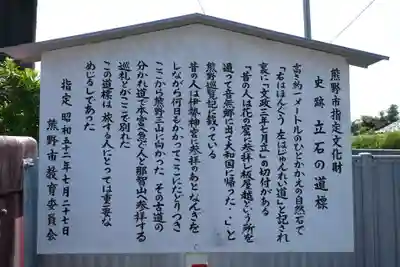 熊野市指定文化財
史跡 立石の道標
高さ約一メートルのひとかかえの自然石で
「右はほんどう 左はじゅんれい道」と記され
裏に「文政三年七月立」の切付がある
「昔の人は花の窟に参拝し板屋越という所を
通って音無郷に出て大和国に帰った…」と
熊野巡覧記に載っている
昔の人は伊勢神宮に参拝のあとなんぎを
しながら何日もかかってここにたどりつき
ここから熊野三山に向かった その古道の
分かれ道で本宮へ急ぐ人と那智山へ参拝する
巡礼とがここで別れた
この道標は旅する人にとっては重要な
めじるしであった
指定 昭和五十二年七月二十七日
熊野市教育委員会